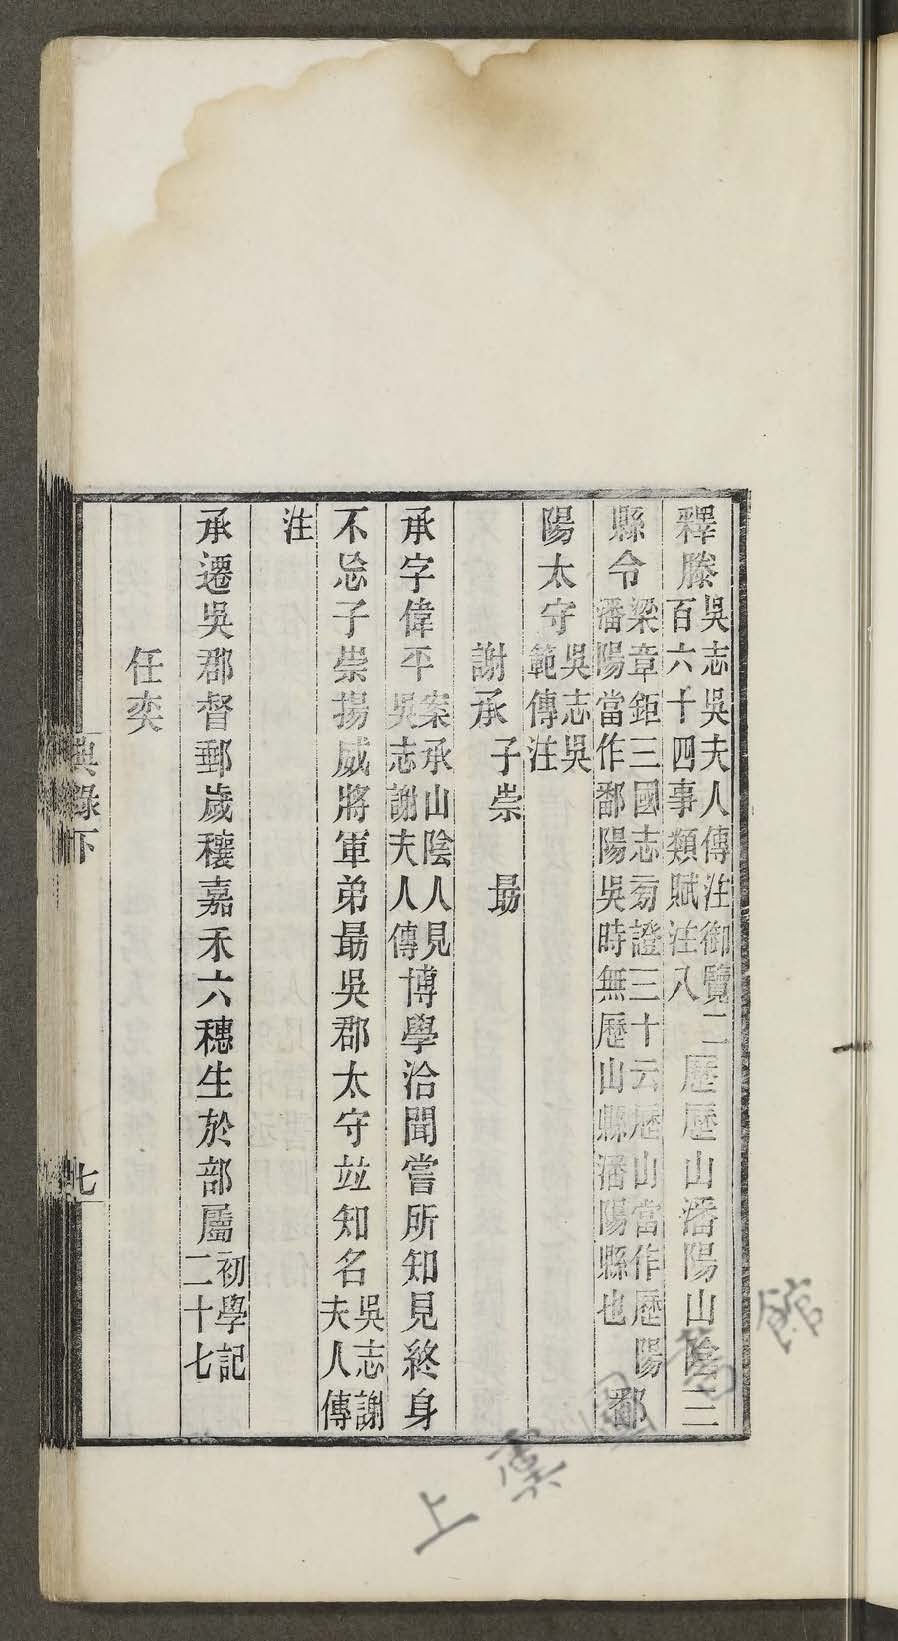 釋滕吳志吳夫人傳注御覽二百六十四事類賦注八歷歷山潘陽山陰三
縣令梁章鉅三國志旁證三十云歷山當作歷陽潘陽當作鄱陽吳時無歷山縣潘陽縣也鄱
陽太守吳志吳範傳注
謝承 子崇 勗
承字偉平案承山陰人見吳志謝夫人傳博學洽聞嘗所知見終身
不忘子崇揚威將軍弟勗吳郡太守竝知名吳志謝夫人傳
注
承遷吳郡督郵歲穰嘉禾六穗生於部屬初學記二十七
任奕
典錄下
七
上虞圖書館